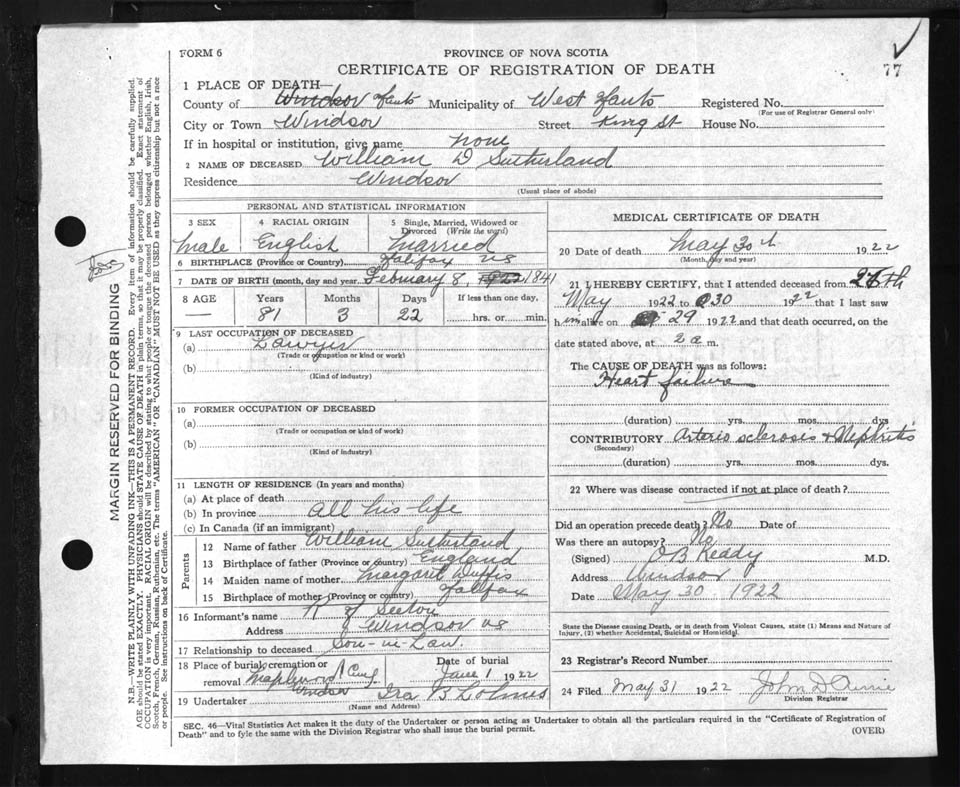 FORM 6
PROVINCE OF NOVA SCOTIA
CERTIFICATE OF REGISTRATION OF DEATH
77
1 PLACE OF DEATH—
County of Windsor Hants Municipality of West Hants Registered No.
(For use of Registrar General only)
City or Town Windsor Street King St House No.
If in hospital or institution, give name none
2 NAME OF DECEASED William D Sutherland
Residence Windsor
(Usual place of abode)
PERSONAL AND STATISTICAL INFORMATION
3 SEX 4 RACIAL ORIGIN 5 Single, Married, Widowed or Divorced (Write the word)
Male English Married
6 BIRTHPLACE (Province or Country) Halifax NS
7 DATE OF BIRTH (month, day and year February 8, 1922 1841
8 AGE Years Months Days If less than one day,
— 81 3 22 hrs. or min.
9 LAST OCCUPATION OF DECEASED
(a) Lawyer
(Trade or occupation or kind or work)
(b)
(Kind of industry)
10 FORMER OCCUPATION OF DECEASED
(a)
(Trade or occupation or kind of work)
(b)
(Kind of industry)
11 LENGTH OF RESIDENCE (In years and months)
(a) At place of death
(b) In province all his life
(c) In Canada (if an immigrant)
Parents
12 Name of father William Sutherland
13 Birthplace of father (Province or country) England
14 Maiden name of mother Margaret Duffis
15 Birthplace of mother (Province or country) Halifax
16 Informant's name R Seeton
Address Windsor NS
17 Relationship to deceased Son-in-Law
18 Place of burial, cremation or removal Maplewood Cem Windsor
Date of burial June 1 1922
19 Undertaker Ira B Lohnes
(Name and Address)
MEDICAL CERTIFICATE OF DEATH
20 Date of death May 30th 1922
(Month, day and year)
21 I HEREBY CERTIFY, that I attended deceased from 26th
May 1922 to 30 1922 that I last saw
him alive on 29 1922 and that death occurred, on the
date stated above, at 2 a m.
The CAUSE OF DEATH was as follows:
Heart failure
(duration) yrs. mos. dys
CONTRIBUTORY Arterio sclerosis & Nephritis
(Secondary)
(duration) yrs. mos. dys.
22 Where was disease contracted if not at place of death?
Did an operation precede death? No Date of
Was there an autopsy? No
(Signed) O B Keddy M.D.
Address Windsor
Date May 30 1922
State the Disease causing Death, or in death from Violent Causes, state (1) Means and Nature of
Injury, (2) whether Accidental, Suicidal or Homicidal.
23 Registrar's Record Number
24 Filed May 31 1922 John D
Division Registrar
SEC. 46—Vital Statistics Act makes it the duty of the Undertaker or person acting as Undertaker to obtain all the particulars required in the "Certificate of Registration of
Death" and to fyle the same with the Division Registrar who shall issue the burial permit.
(OVER)
MARGIN RESERVED FOR BINDING
N.B.—WRITE PLAINLY WITH UNFADING INK—THIS IS A PERMANENT RECORD. Every item of information should be carefully supplied.
AGE should be stated EXACTLY. PHYSICIANS should STATE CAUSE OF DEATH in plain terms, so that it may be properly classified. Exact statement of
OCCUPATION is very important. RACIAL ORIGIN will be described by stating to what people or tongue the deceased person belonged whether English, Irish,
Scotch, French, German, Russian, Ruthenian, etc. The terms "AMERICAN" or "CANADIAN" MUST NOT BE USED as they express citizenship but not a race
or people. See instructions on back of Certificate.